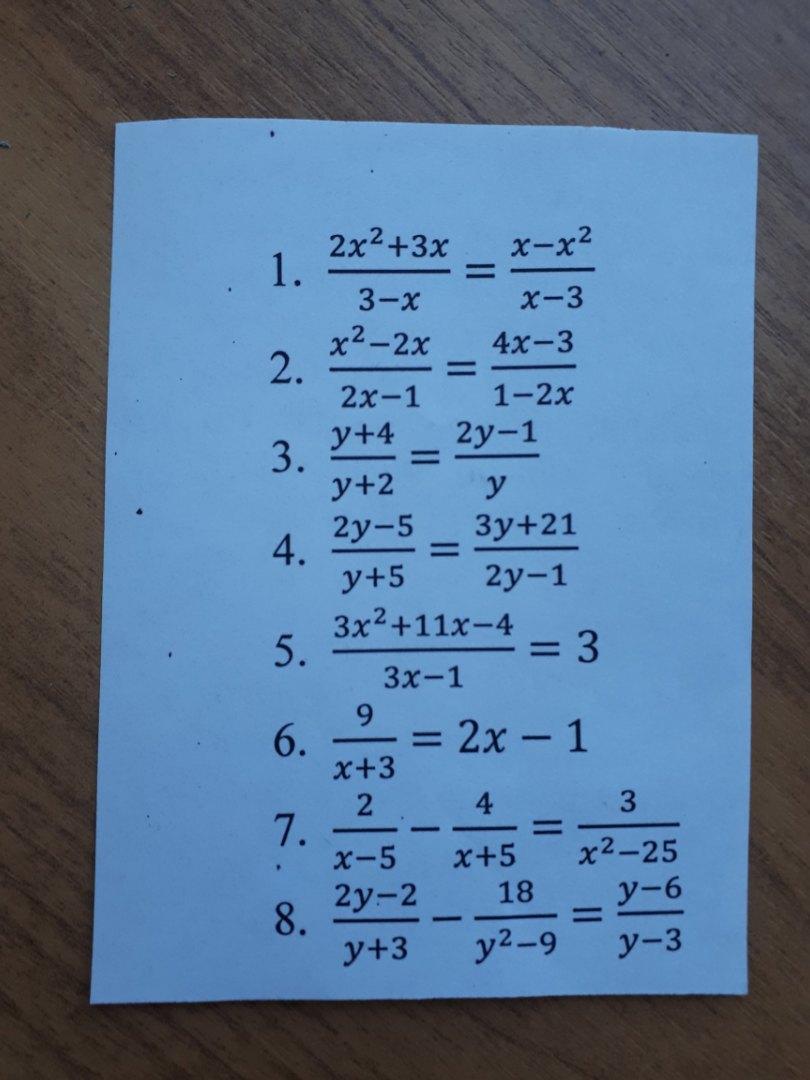 1. \frac{2x^2+3x}{3-x} = \frac{x-x^2}{x-3}
2. \frac{x^2-2x}{2x-1} = \frac{4x-3}{1-2x}
3. \frac{y+4}{y+2} = \frac{2y-1}{y}
4. \frac{2y-5}{y+5} = \frac{3y+21}{2y-1}
5. \frac{3x^2+11x-4}{3x-1} = 3
6. \frac{9}{x+3} = 2x - 1
7. \frac{2}{x-5} - \frac{4}{x+5} = \frac{3}{x^2-25}
8. \frac{2y-2}{y+3} - \frac{18}{y^2-9} = \frac{y-6}{y-3}